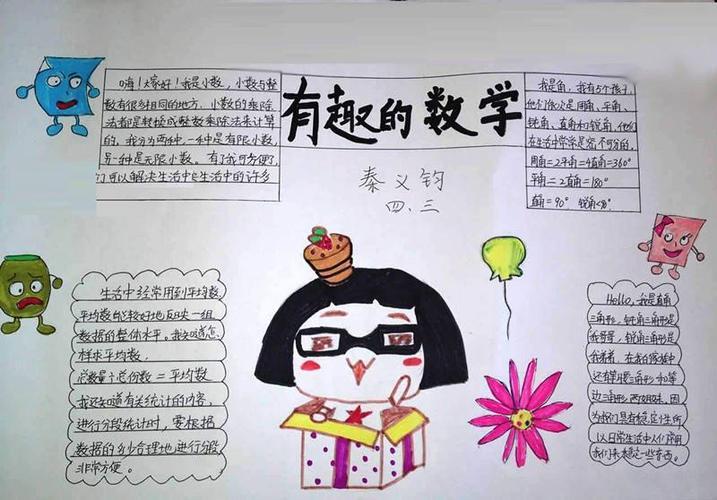 有趣的数学
秦义钧
四、三
嗨！大家好！我是小数，小数与整
数有很多相同的地方，小数的乘除
法都是转换成整数乘除法来计算
的，我分为两种，一种是有限小数，
另一种是无限小数，有了我可方便了，
们可以解决生活中生活中的许多
我是角，我有5个孩子，
他们依次是周角、平角、
钝角、直角和锐角，他们
在生活中常常是密不可分的，
周角=2平角=4直角=360°
平角=2直角=180°
直角=90°，锐角<90°
生活中经常用到平均数，
平均数能较好地反映一组
数据的整体水平。我知道怎
样求平均数，
总数量÷总份数=平均数
我还知道有关统计的内容，
进行分段统计时，要根据
数据的多少合理地进行分段
非常方便。
Hello，我是直角
三角形，钝角三角形是
我哥哥，锐角三角形是
我弟弟，在我的家族中
还有等腰三角形和等
边三角形两姐妹，因
为我们具有稳定性所
以日常生活中人们常用
我们来稳定一些东西。